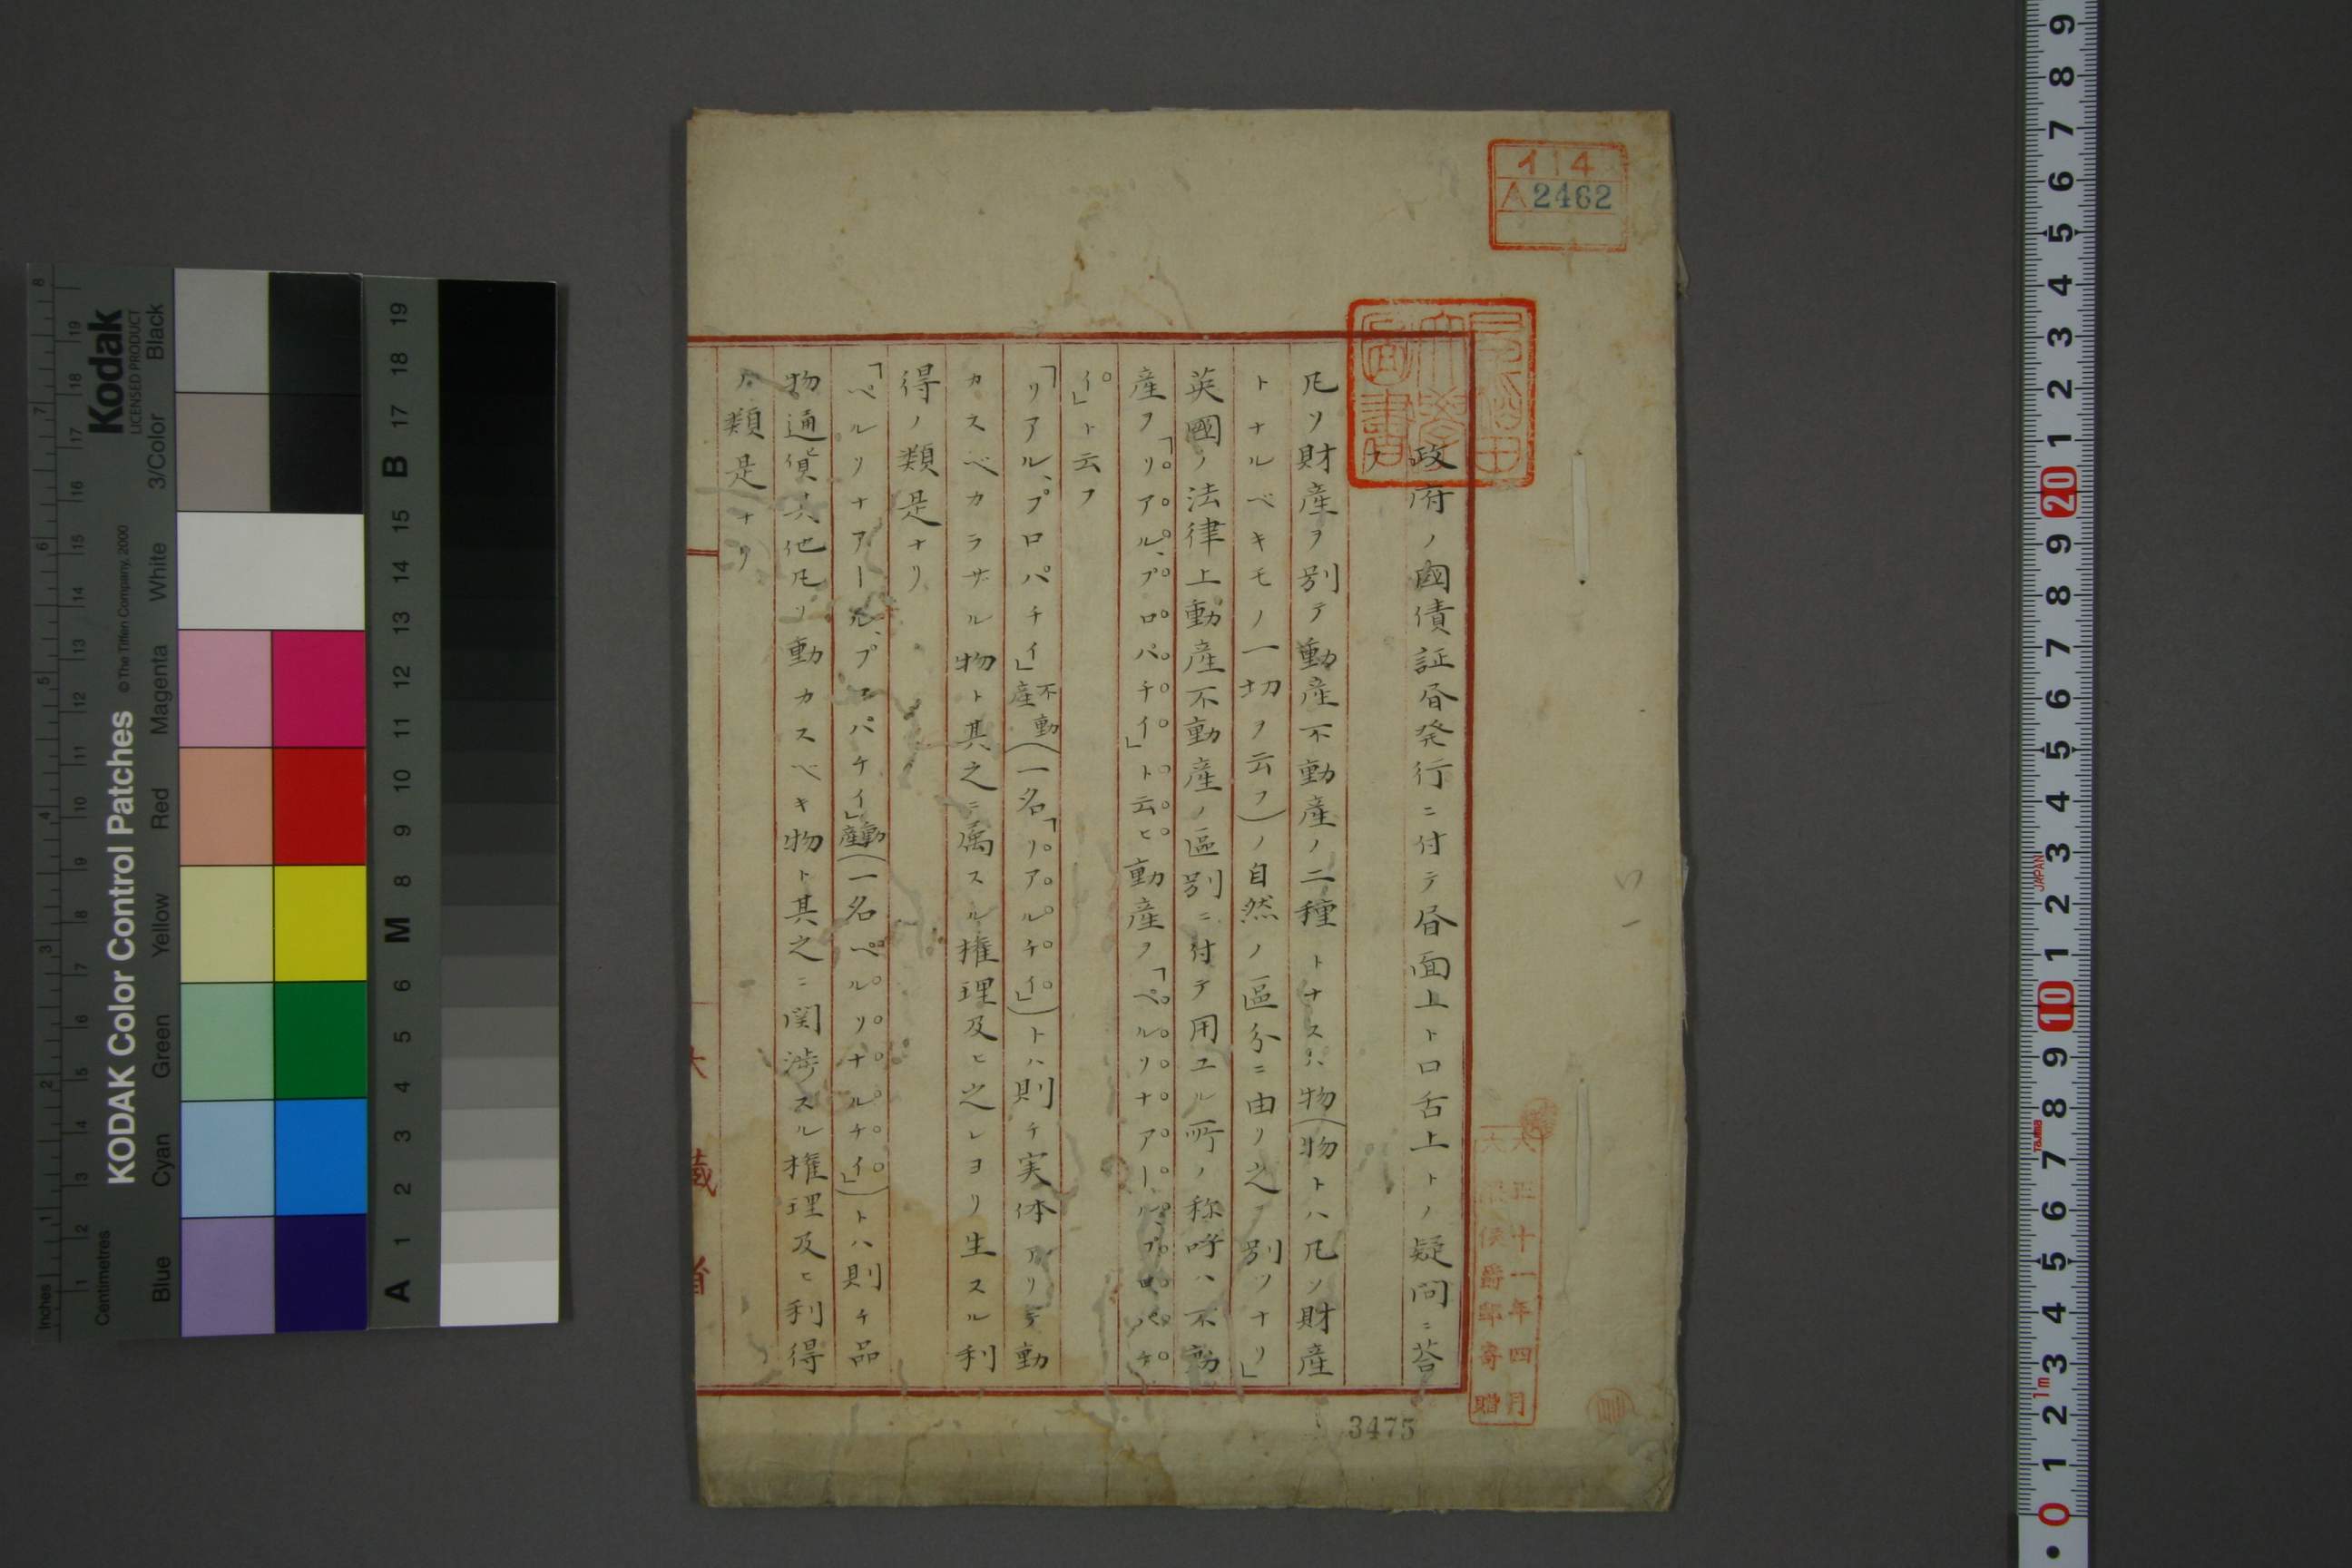 政府ノ國債証昏発行ニ付テ昏面上ト口舌上トノ疑問ニ荅
ノ
凡ソ財産ヲ別テ動産不動産ノ二種トナス、物(物トハ凡ソ財産
トナルベキモノ一切ヲ云フ)ノ自然ノ區分ニ由リ之ヲ別ツナリ」
英國ノ法律上動産不動産ノ區別ニ付テ用ユル所ノ称呼ハ不動
産ヲ「リアル、プロパチイ」ト云ヒ動産ヲ「ペルソナアール、プロパチ
イ」ト云フ
「リアル、プロパチイ」不動産(一名「リアルチイ」)トハ則チ実体アリテ動
カスベカラザル物ト其之ニ属スル権理及ヒ之レヨリ生スル利
得ノ類是ナリ
「ペルソナアール、プロパチイ」動産(一名ペルソナルチイ」)トハ則チ品
物通貨其他凡ソ動カスベキ物ト其之ニ関渉スル権理及ヒ利得
ノ類是ナリ
大藏省
イ14
A2462
早稲田大學圖書
大正十一年四月
大隈侯爵邸寄贈
3475
Kodak
LICENSED PRODUCT
KODAK Color Control Patches
© The Tiffen Company, 2000
Inches
Centimetres
Blue
Cyan
Green
Yellow
Red
Magenta
White
3/Color
Black
A 1 2 3 4 5 6 M 8 9 10 11 12 13 14 15 B 17 18 19
JAPAN
Tajima
1m